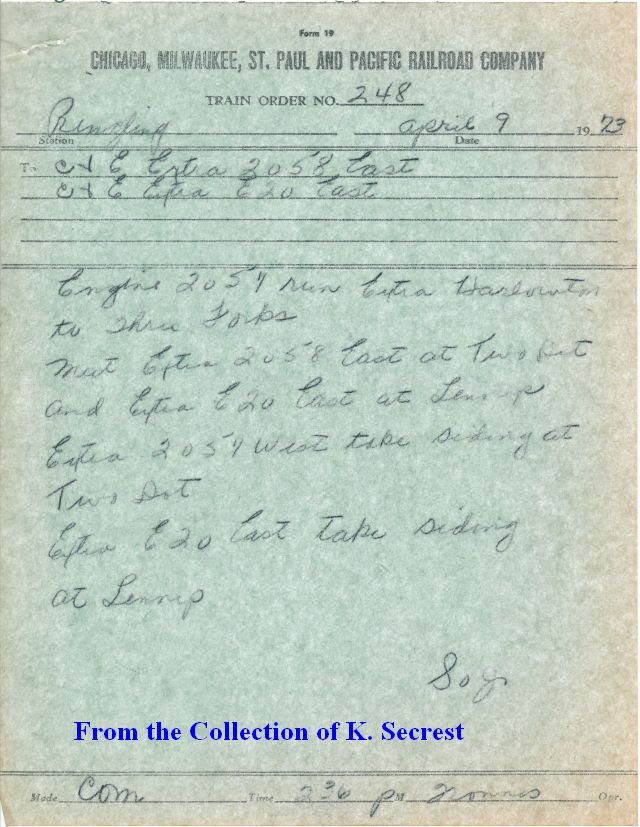 Form 19
CHICAGO, MILWAUKEE, ST. PAUL AND PACIFIC RAILROAD COMPANY
TRAIN ORDER NO. 248
Ringling april 9 1973
Station Date
To C & E Extra 2058 East
C & E Extra E20 East
Engine 2057 run Extra Harlowton
to Three Forks
Meet Extra 2058 East at Two Dot
and Extra E20 East at Lennep
Extra 2057 West take siding at
Two Dot
Extra E20 East take siding
at Lennep
From the Collection of K. Secrest
Made Com Time 236 PM Opr.